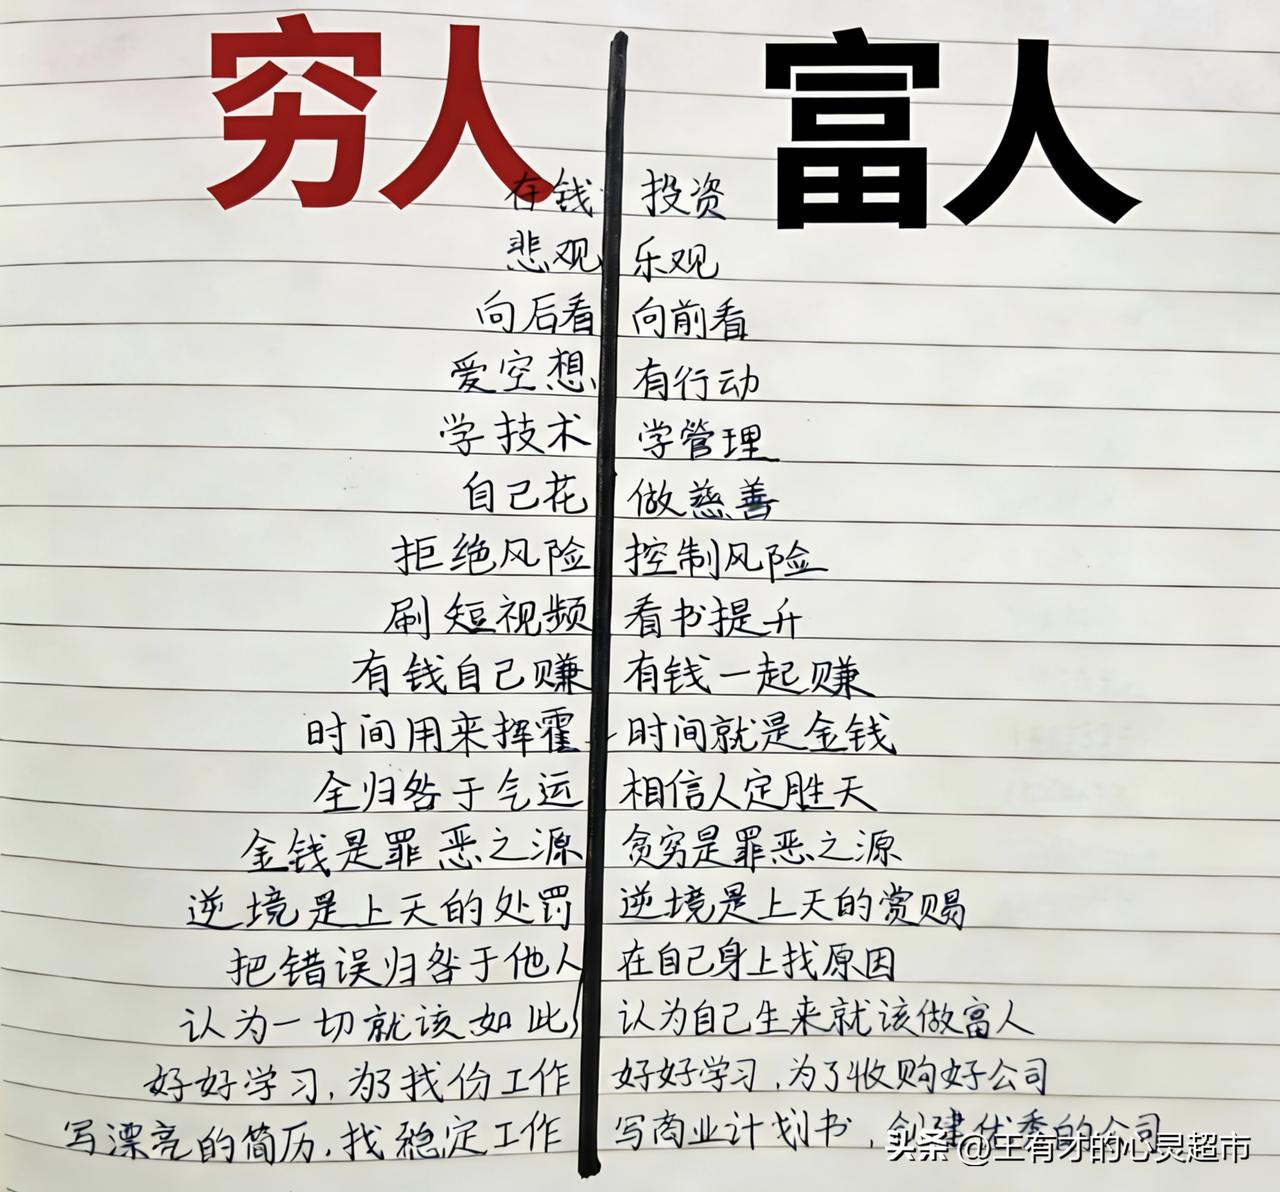 穷人 富人
存钱 投资
悲观 乐观
向后看 向前看
爱空想 有行动
学技术 学管理
自己花 做慈善
拒绝风险 控制风险
刷短视频 看书提升
有钱自己赚 有钱一起赚
时间用来挥霍 时间就是金钱
全归咎于气运 相信人定胜天
金钱是罪恶之源 贪穷是罪恶之源
逆境是上天的处罚 逆境是上天的赏赐
把错误归咎于他人 在自己身上找原因
认为一切就该如此 认为自己生来就该做富人
好好学习,为了找份工作 好好学习,为了收购好公司
写漂亮的简历,找稳定工作 写商业计划书,创建优秀的公司
头条 @王有才的心灵超市